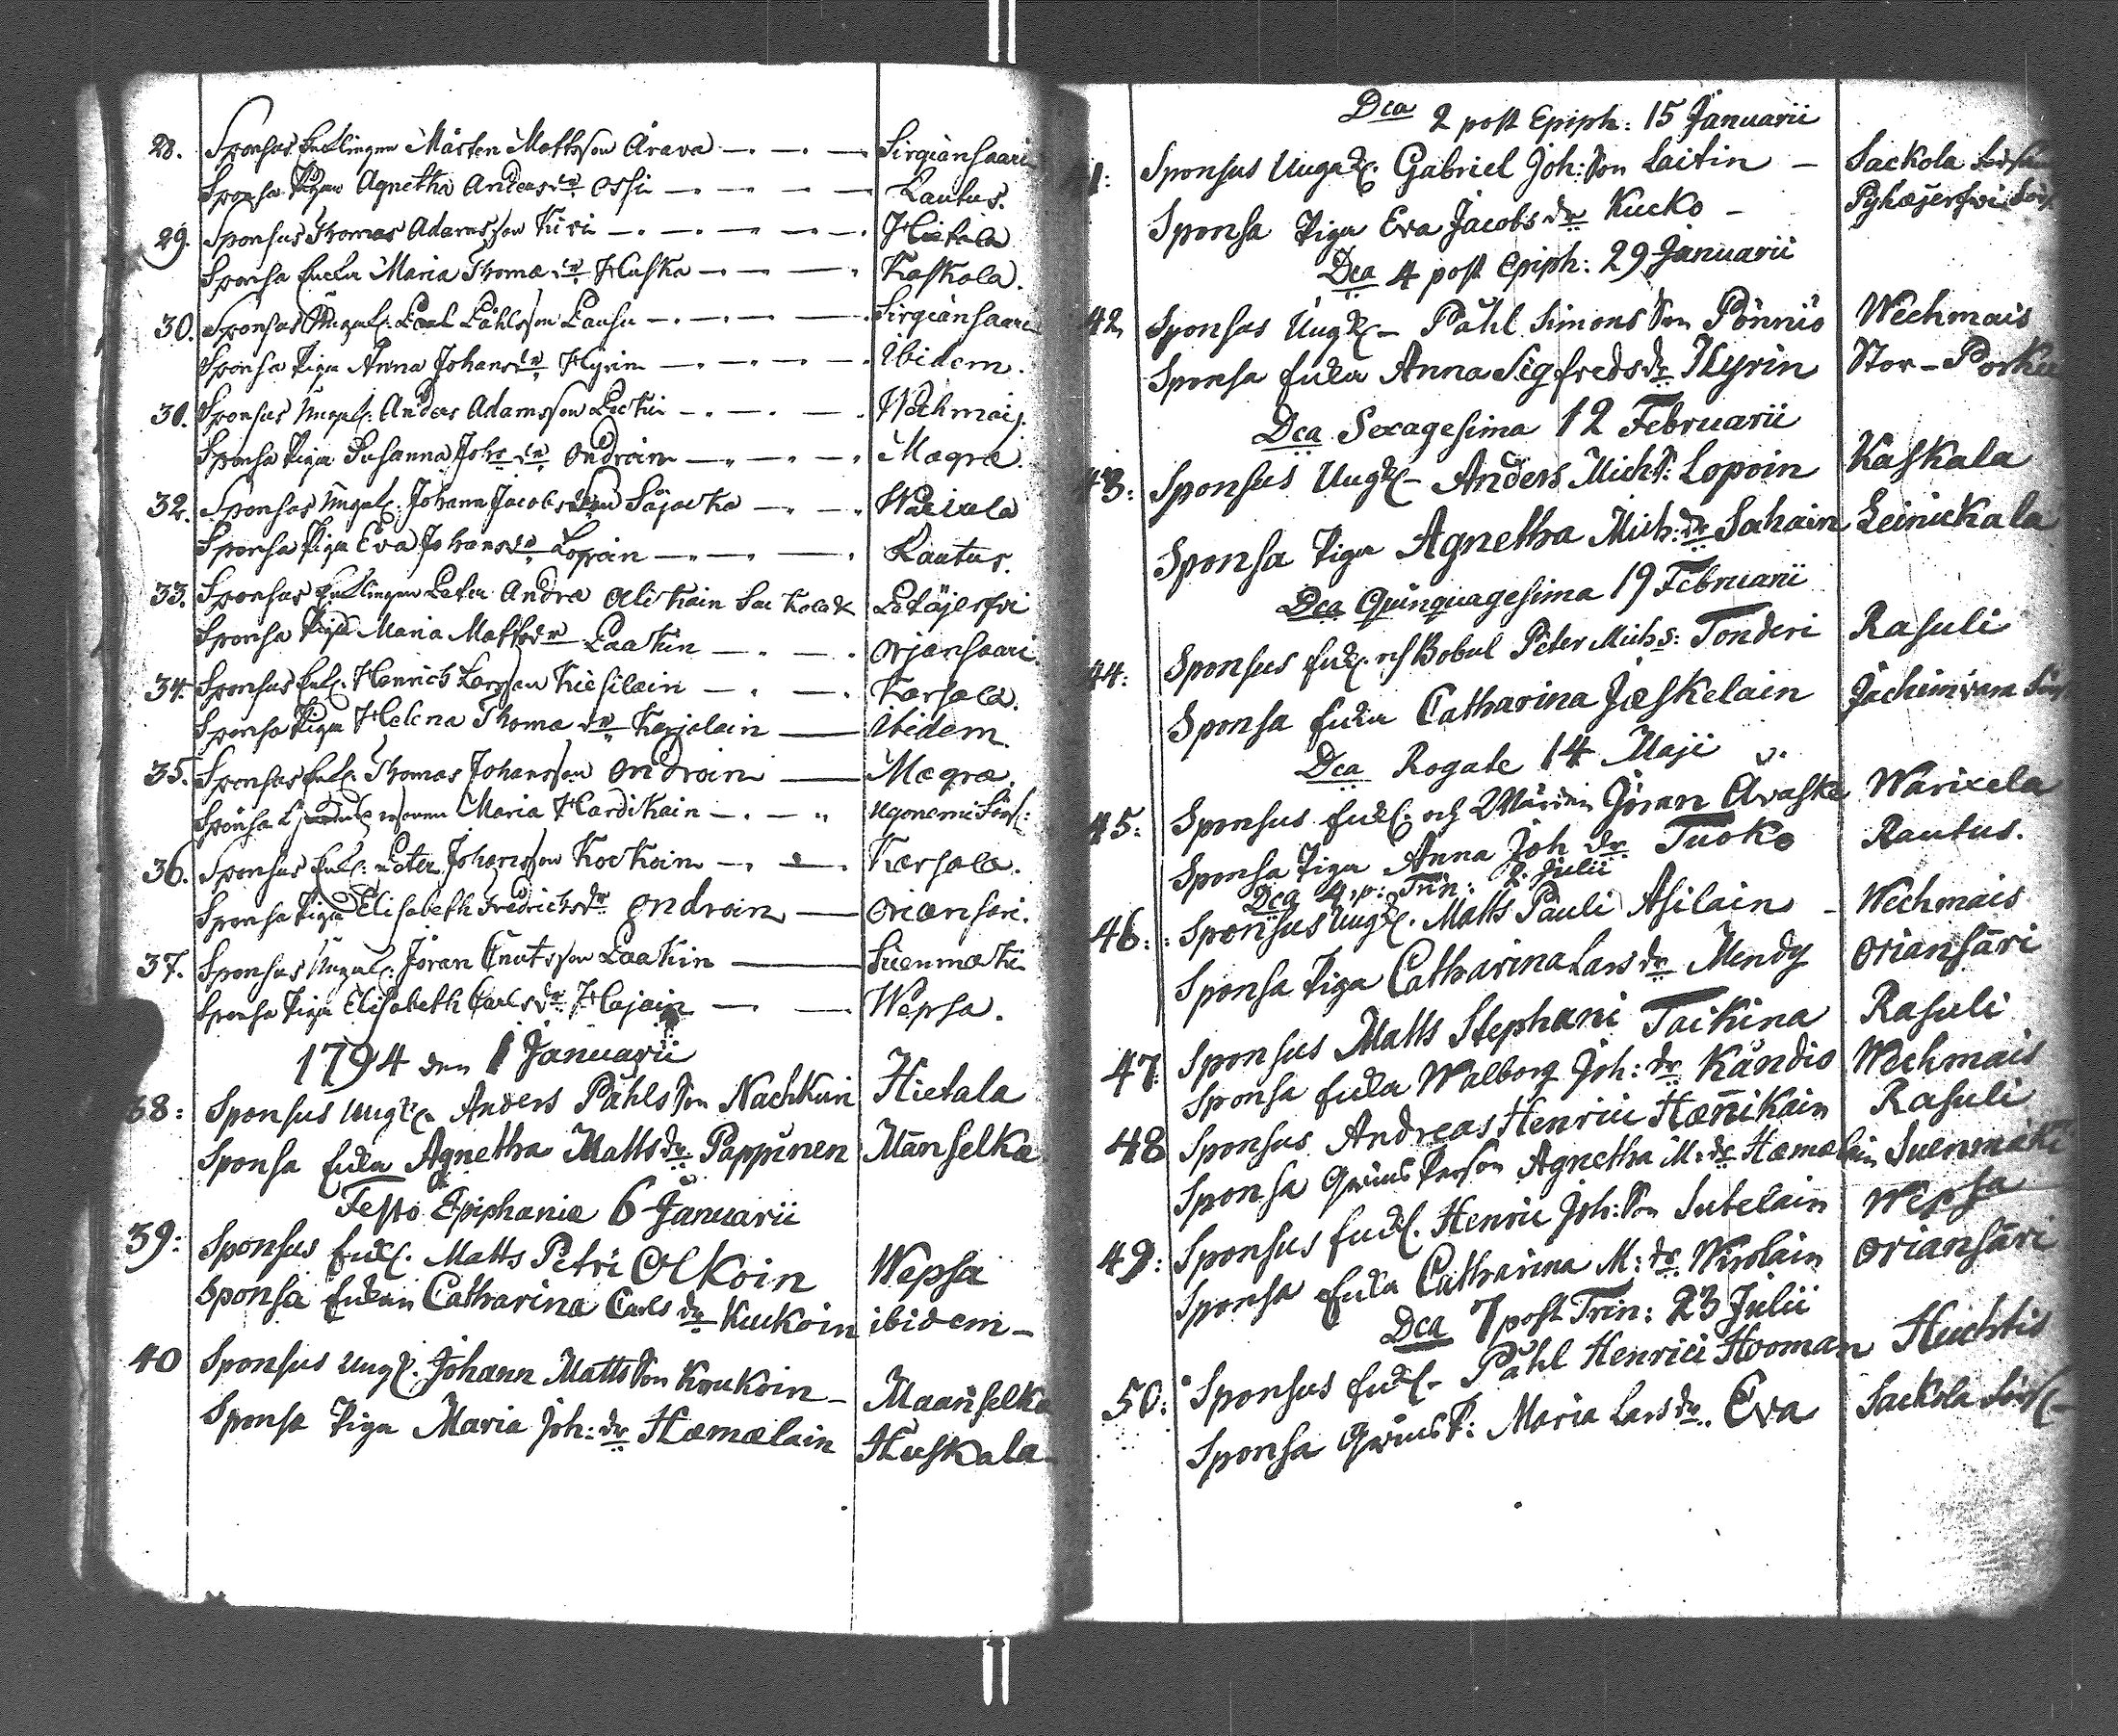 28. Sponsus Enklingen Mårten Mattsson Arava Sirgiänsaari
Sponsa Pigan Agnetha Andersdr Ossi Rautus.
29. Sponsus Thomas Adamsson Kiri Hietala
Sponsa Enkan Maria Thomædr Huska Kaskala.
30. Sponsus Ungk: Påhlsson Pausu Sirgiänsaari
Sponsa Piga Anna Johansdr Hyrin Ibidem.
Sponsus Ungk: Anders Adamsson Wechmais.
Sponsa Piga Susanna Johsdr Ondroin Mægræ.
32. Sponsus Ungk: Johann Jacobsson Säjacka
Sponsa Piga Eva Johansdr Lopoin Rautus.
33. Sponsus Enklingen Peter Andræ
Sponsa Piga Maria Mattsdr Laakin Orjansaari.
34. Sponsus Enk: Henrich Larsson Kiesiläin Karsala.
Sponsa Piga Helena Thomædr Karjalain Ibidem
35. Sponsus Enk: Thomas Johansson Ondroin Mægræ.
Sponsa Maria Hardikain Ugoniemi
36. Sponsus Enk: Peter Johansson Kockoin Karsala.
Sponsa Piga Elisabeth Fredrichsdr Ondroin Oriansari.
37. Sponsus Ungk: Jöran Cnutsson Laakin Suenmæki
Sponsa Piga Elisabeth Carlsdr Hajain Wepsa.
1794 den 1 Januarii
38: Sponsus Ungk: Anders Påhlsson Nachkuri Hietala
Sponsa Enka Agnetha Mattsdr Pappinen Mänselkæ
Festo Epiphaniæ 6 Januarii
39: Sponsus Enkl. Matts Petri Olkoin Wepsa
Sponsa Enkan Catharina Carlsdr Kukoin ibidem
40 Sponsus Ungk. Johann Mattsson Koukoin Maanselkæ
Sponsa Piga Maria Joh: dr Hæmælain Huskala
Dca 2 post Epiph: 15 Januarii
41: Sponsus Ungk. Gabriel Joh: Son Laitin Sackola
Sponsa Piga Eva Jacobs dr Kucko Pyhæjerfvi
Dca 4 post Epiph: 29 Januarii
42 Sponsus Ungk Påhl Simons Son Pönniö Wechmais
Sponsa Enka Anna Sigfreds dr Hyrin Stor-Porku
Dca Sexagesima 12 Februarii
43: Sponsus Ungk Anders Mich S: Lopoin Kaskala
Sponsa Piga Agnetha Mich: dr Sahain Leinickala
Dca Quinquagesima 19 Februarii
44: Sponsus Enk. och Bobul Peter Mich s: Tonderi Rasuli
Sponsa Enka Catharina Jæskelain Jachimvara
Dca Rogate 14 Maji
45: Sponsus Enkl. och Jöran Avaske Warixela
Sponsa Piga Anna Joh dr Tuoko Rautus.
Dca 4. p: Trin: 2 Julii
46: Sponsus Ungk. Matts Pauli Asilain Wechmais
Sponsa Piga Catharina Lars dr Mendy Oriansäri
47: Sponsus Matts Stephani Taikina Rasuli
Sponsa Enka Walborg Joh: dr Kändiö Wechmais
48 Sponsus Andreas Henrici Hæn̄ikain Rasuli
Sponsa Agnetha M: dr Hæmælain Suenmäki
49: Sponsus Enkl. Henric Joh: Son Sutelain Wepsa
Sponsa Enka Catharina M: dr Wirolain Oriansäri
Dca 7 post Trin: 23 Julii
50: Sponsus Enkl Påhl Henrici Hooman Huchtis
Sponsa Maria Lars dr Eva Sackola